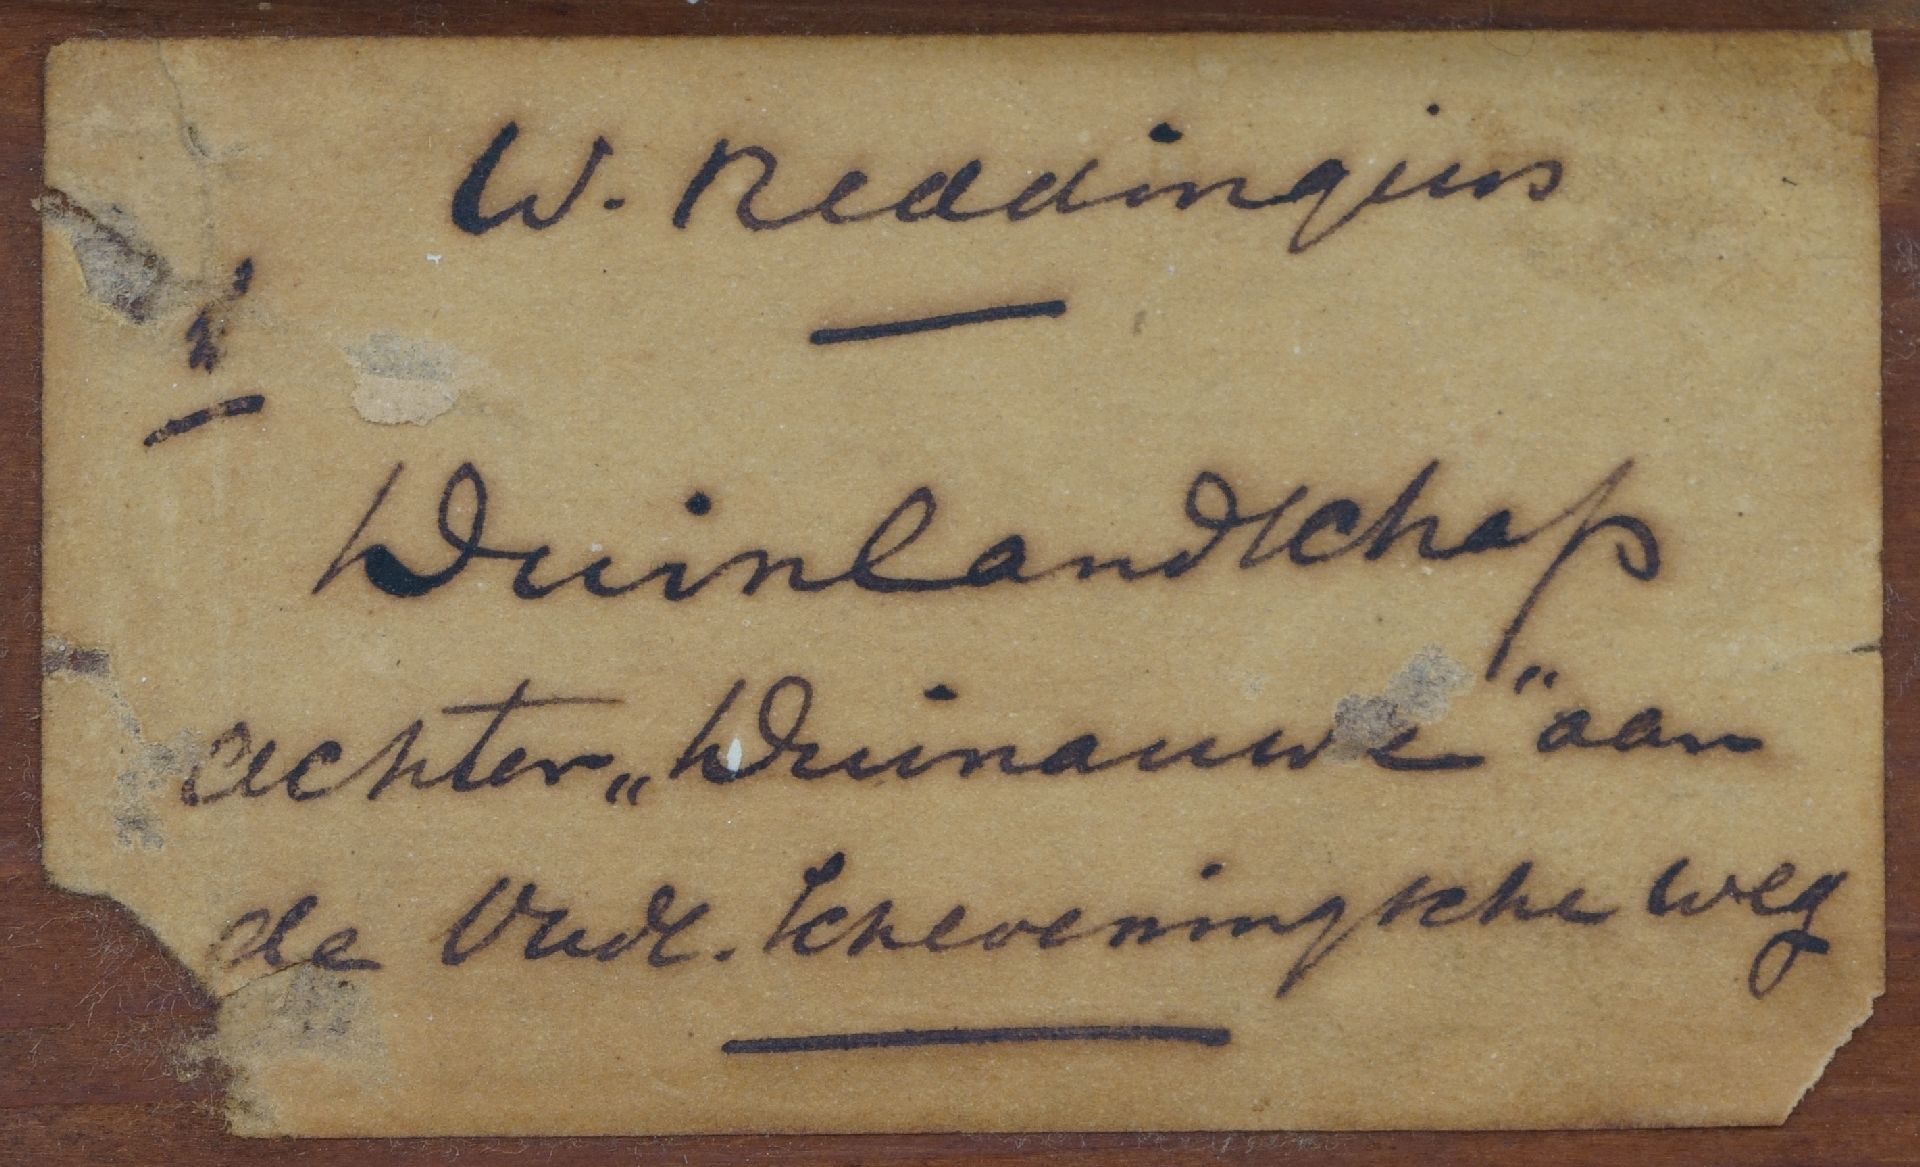 W. Reddingius
Duinlandschap
achter „Duinauwe" aan
de Oude. Scheveningsche weg